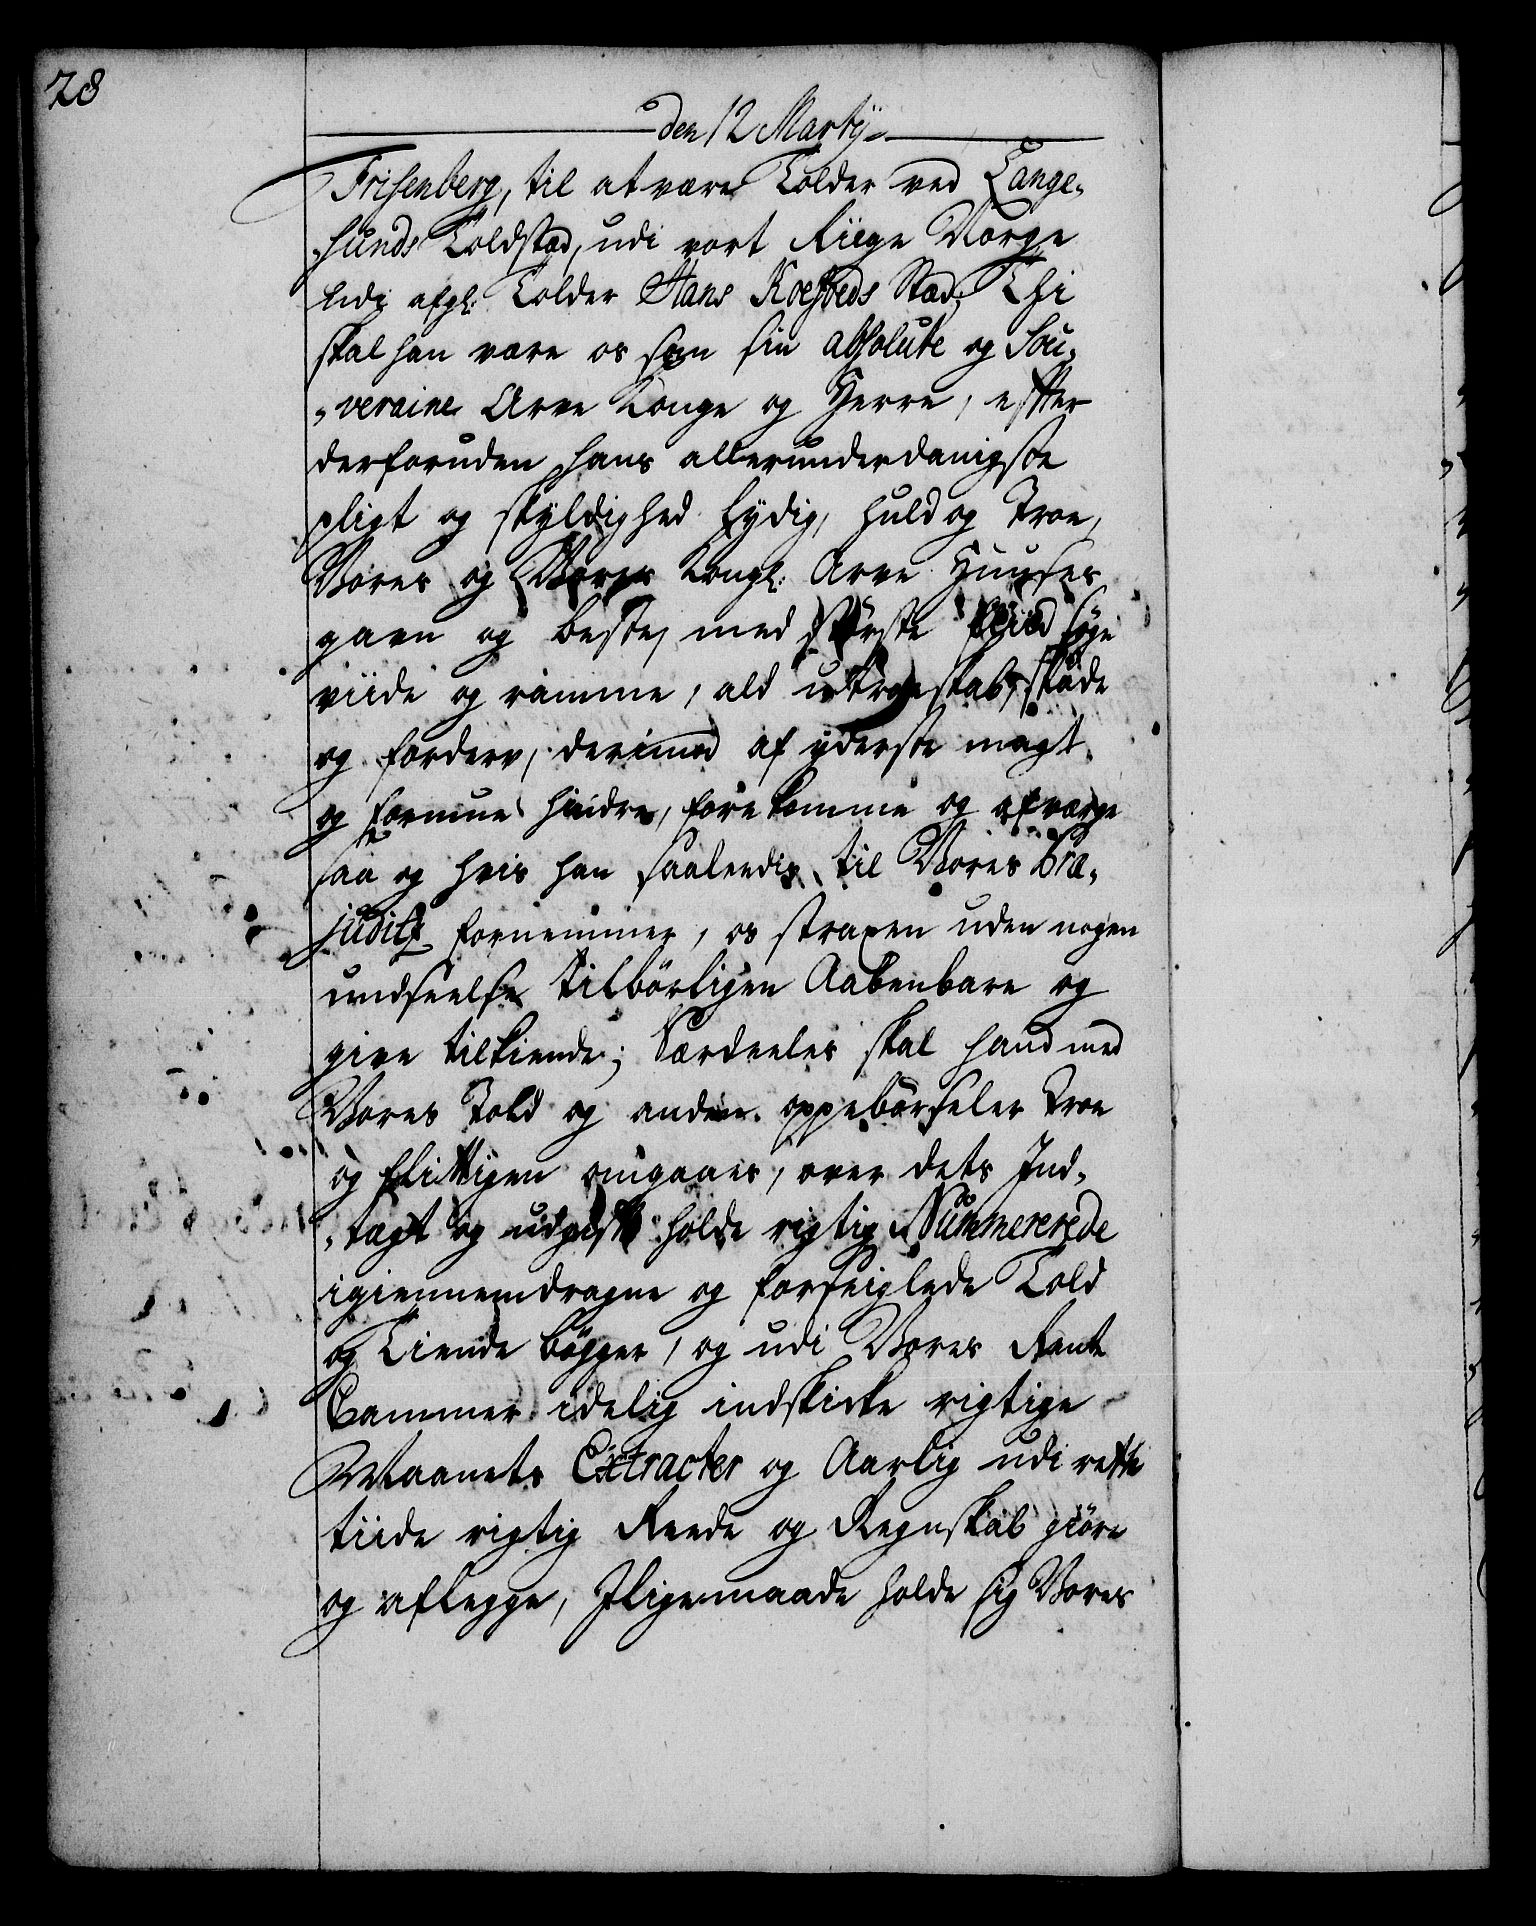 28
den 12 Martÿ
Frisenberg, til at være Tolder ved Lange¬
sunds Toldstæd, udi vort Riige Norge
udi afgl: Tolder Hans Koefoeds Stæd; Thi
skal han være os som sin absolute og Sou¬
veraine Arve Konge og Herre, efter
derforuden hans allerunderdanigste
pligt og skyldighed lydig, huld og Troe,
Vores og Vores Kongl: Arve Huuses
gavn og beste, med største fliid søge
viide og ramme, ald utroeskab, skade
og forderv, derimod af yderste magt
og formue hindre, forekomme og afværge
saa og hvis han saaleedes til Vores Præ¬
juditz fornemmer, os straxen uden nogen
undseelse tilbörligen Aabenbare og
give tilkiende; Særdeeles skal hand med
Vores Told og anden oppebörseler troe
og flittigen omgaaes, over dets Ind¬
tægt og udgift holde rigtig Nummererede
igiennemdragne og forseiglede Told
og Tiende böger, og udi Vores Rente
Cammer idelig indskicke rigtige
Maanets Extracter og Aarlig udi rette
tiide rigtig Reede og Regnskab giöre
og aflegge, Iligemaade holde sig Vores